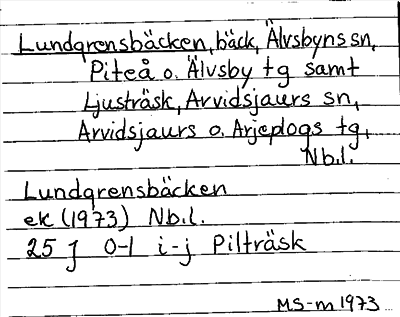 Lundgrensbäcken, bäck, Älvsbyns sn,
Piteå o. Älvsby tg samt
Ljusträsk, Arvidsjaurs sn,
Arvidsjaurs o. Arjeplogs tg,
Nb.l.
Lundgrensbäcken
ek (1973) Nb.l.
25 J 0-1 i-j Pilträsk
MS-m 1973